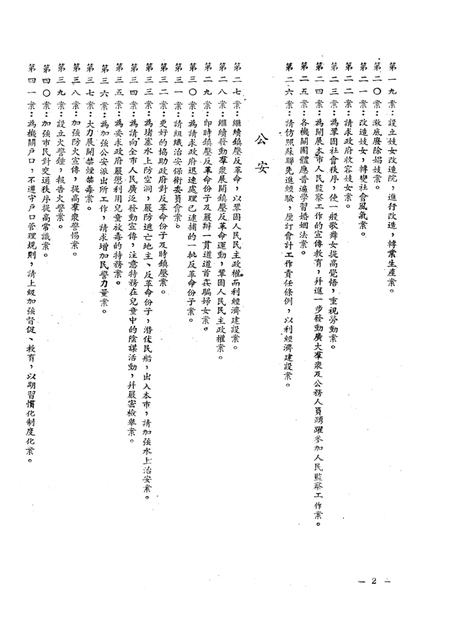 第一九案:設立妓女改造院,進行改造,轉業生產案。
第二〇案:澈底廢除娼妓案。
第二一案:改造妓女,轉變社會風氣案。
第二二案:請求政府收容妓女案。
第二三案:為鞏固社會秩序,使一般歌舞女提高覺悟,重視勞動案。
第二四案:為開展本市人民監察工作的宣傳教育,并進一步發動廣大羣衆及公務人員踴躍參加人民監察工作案。
第二五案:各機關團體應普遍學習婚姻法案。
第二六案:請仿照蘇聯先進經驗,厘訂會計工作責任條例,以利經濟建設案。
公安
第二七案:繼續鎮壓反革命,以鞏固人民民主政權而利經濟建設案。
第二八案:繼續發動羣衆展開鎮壓反革命運動,鞏固人民民主政權案。
第二九案:即時鎮壓反革命份子及嚴辦一貫道道首奕騙婦女案。
第三〇案:為請求政府迅速處理已逮捕的一批反革命份子案。
第三一案:請組織治安保衛委員會案。
第三二案:更好的協助政府對反革命份子及時鎮壓案。
第三三案:為堵塞水上防空洞,嚴防逃亡地主、反革命份子,潛伏民船,出入本市,請加強水上治安案。
第三四案:為請向全市人民廣泛發動宣傳,注意特務在兒童中的陰謀活動,并嚴密檢舉案。
第三五案:為要求政府嚴懲利用兒童放毒的特務案。
第三六案:為加強公安派出所工作,請求增加民警力量案。
第三七案:大力展開禁煙禁毒案。
第三八案:加強防火宣傳,提高羣衆警惕案。
第三九案:設立火警鐘,報告火警案。
第四〇案:加強市民對交通秩序提高常識案。
第四一案:為機關戶口,不遵守戶口管理規則,請上級加強督促、教育,以期習慣化制度化案。
— 2 —